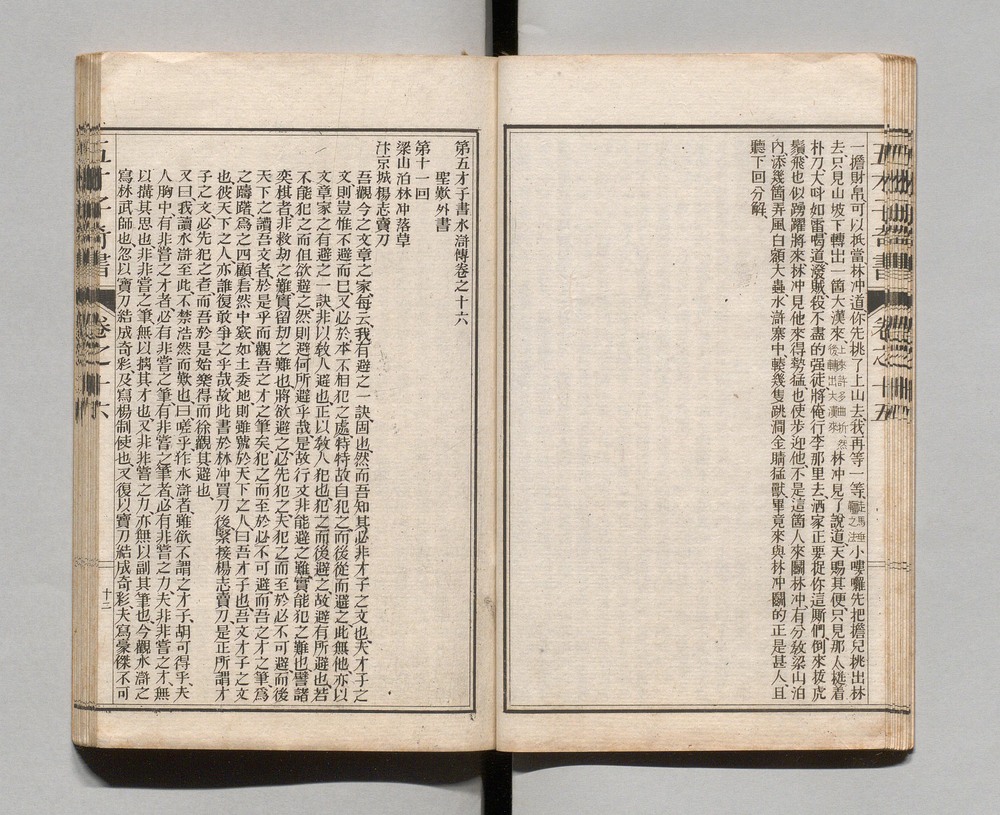 一擔財帛可以抵當林冲道你先挑了上山去我再等一等走馬垂韁之法小嘍囉先把擔兒挑出林
去只見山坡下轉出一箇大漢來上來許多曲折然後轉出大漢來林冲見了說道天賜其便只見那人挺着
朴刀大呌如雷喝道潑賊殺不盡的强徒將俺行李那里去洒家正要捉你這厮們倒來拔虎
鬚飛也似踴躍將來林冲見他來得勢猛也使步迎他不是這箇人來鬬林冲有分敎梁山泊
內添幾箇弄風白額大蟲水滸寨中輳幾隻跳澗金睛猛獸畢竟來與林冲鬬的正是甚人且
聽下回分解
卷之十五
第五才子書水滸傳卷之十六
聖歎外書
第十一回
梁山泊林冲落草
汴京城楊志賣刀
吾觀今之文章之家每云我有避之一訣固也然而吾知其必非才子之文也夫才子之
文則豈惟不避而已又必於本不相犯之處特特故自犯之而後從而避之此無他亦以
文章家之有避之一訣非以敎人避也正以敎人犯也犯之而後避之故避有所避也若
不能犯之而但欲避之然則避何所避乎哉是故行文非能避之難實能犯之難也譬諸
奕棋者非救劫之難實留劫之難也將欲避之必先犯之夫犯之而至於必不可避而後
天下之讀吾文者於是乎而觀吾之才之筆矣犯之而至於必不可避而吾之才之筆爲
之躊躇爲之四顧砉然中窾如土委地則雖號於天下之人曰吾才子也吾文才子之文
也彼天下之人亦誰復敢爭之乎哉故此書於林冲買刀後緊接楊志賣刀是正所謂才
子之文必先犯之者而吾於是始樂得而徐觀其避也
又曰我讀水滸至此不禁浩然而歎也曰嗟乎作水滸者雖欲不謂之才子胡可得乎夫
人胸中有非嘗之才者必有非嘗之筆有非嘗之筆者必有非嘗之力夫非非嘗之才無
以搆其思也非非嘗之筆無以摛其才也又非非嘗之力亦無以副其筆也今觀水滸之
寫林武師也忽以寶刀結成奇彩及寫楊制使也又復以寶刀結成奇彩夫寫豪傑不可
卷之十六
十二